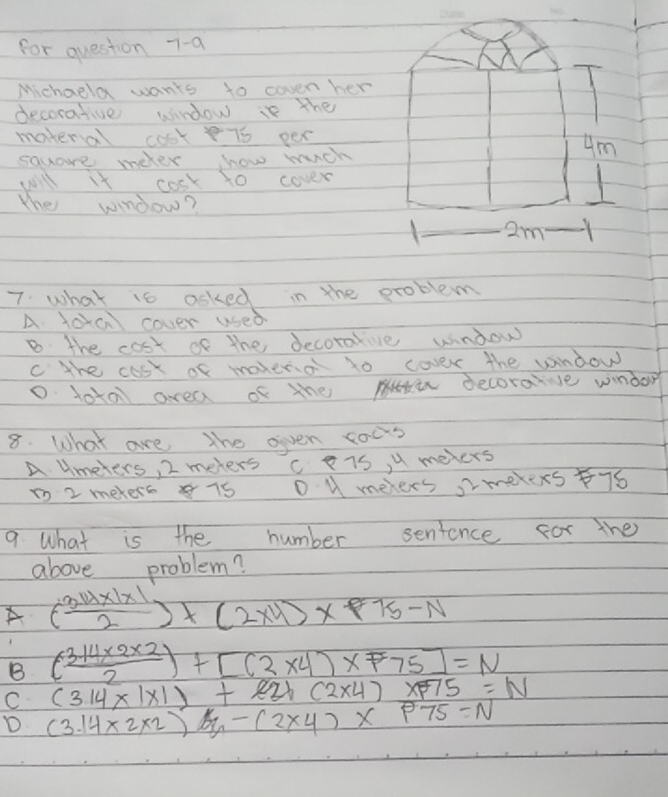 for question 7-9
Michaela wants to cover her
decorative window if the
material cost ₱75 per
square meter how much
will it cost to cover
the window?
4m
2m
7. What is asked in the problem
A. total cover used
B. the cost of the decorative window
C. the cost of material to cover the window
D. total area of the decorative window
8. What are the given facts
A. 4meters, 2 meters C. ₱75, 4 meters
B. 2 meters ₱75 D. 4 meters, 2 meters ₱75
9. What is the number sentence for the
above problem?
A (3.14x1x1/2) + (2x4) x ₱75-N
B. (3.14x2x2/2) + [(2x4) x ₱75] = N
C. (3.14x1x1) + (2x4) x₱75 = N
D. (3.14x2x2) - (2x4) x ₱75=N